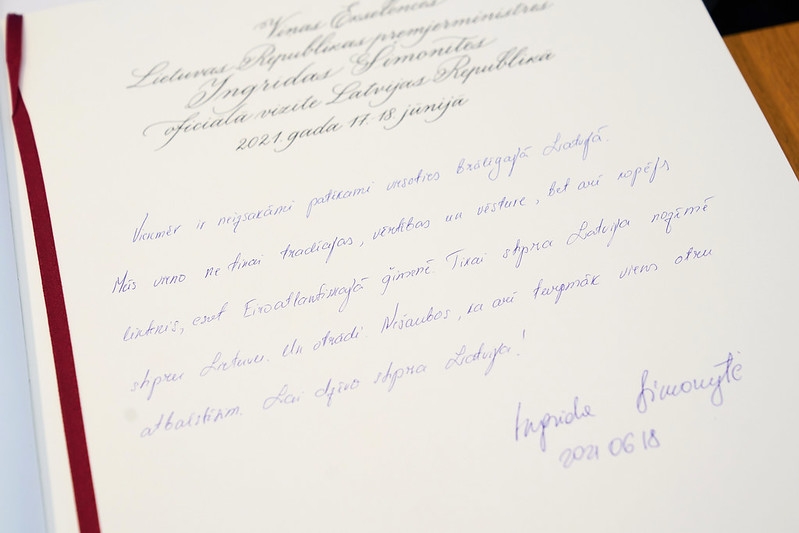 Viņas Ekselences
Lietuvas Republikas premjerministres
Ingrīdas Šimonītes
oficiālā vizīte Latvijas Republikā
2021. gada 17.-18. jūnijā
Vienmēr ir neizsakāmi patīkami viesoties brālīgajā Latvijā.
Mūs vieno ne tikai tradīcijas, vērtības un vēsture, bet arī kopējs
liktenis, esot Eiroatlantiskajā ģimenē. Tikai stipra Latvija nozīmē
stipru Lietuvu. Un otrādi. Nešaubos, ka arī turpmāk viens otru
atbalstīsim. Lai dzīvo stipra Latvija!
Ingrida Šimonytė
2021 06 18